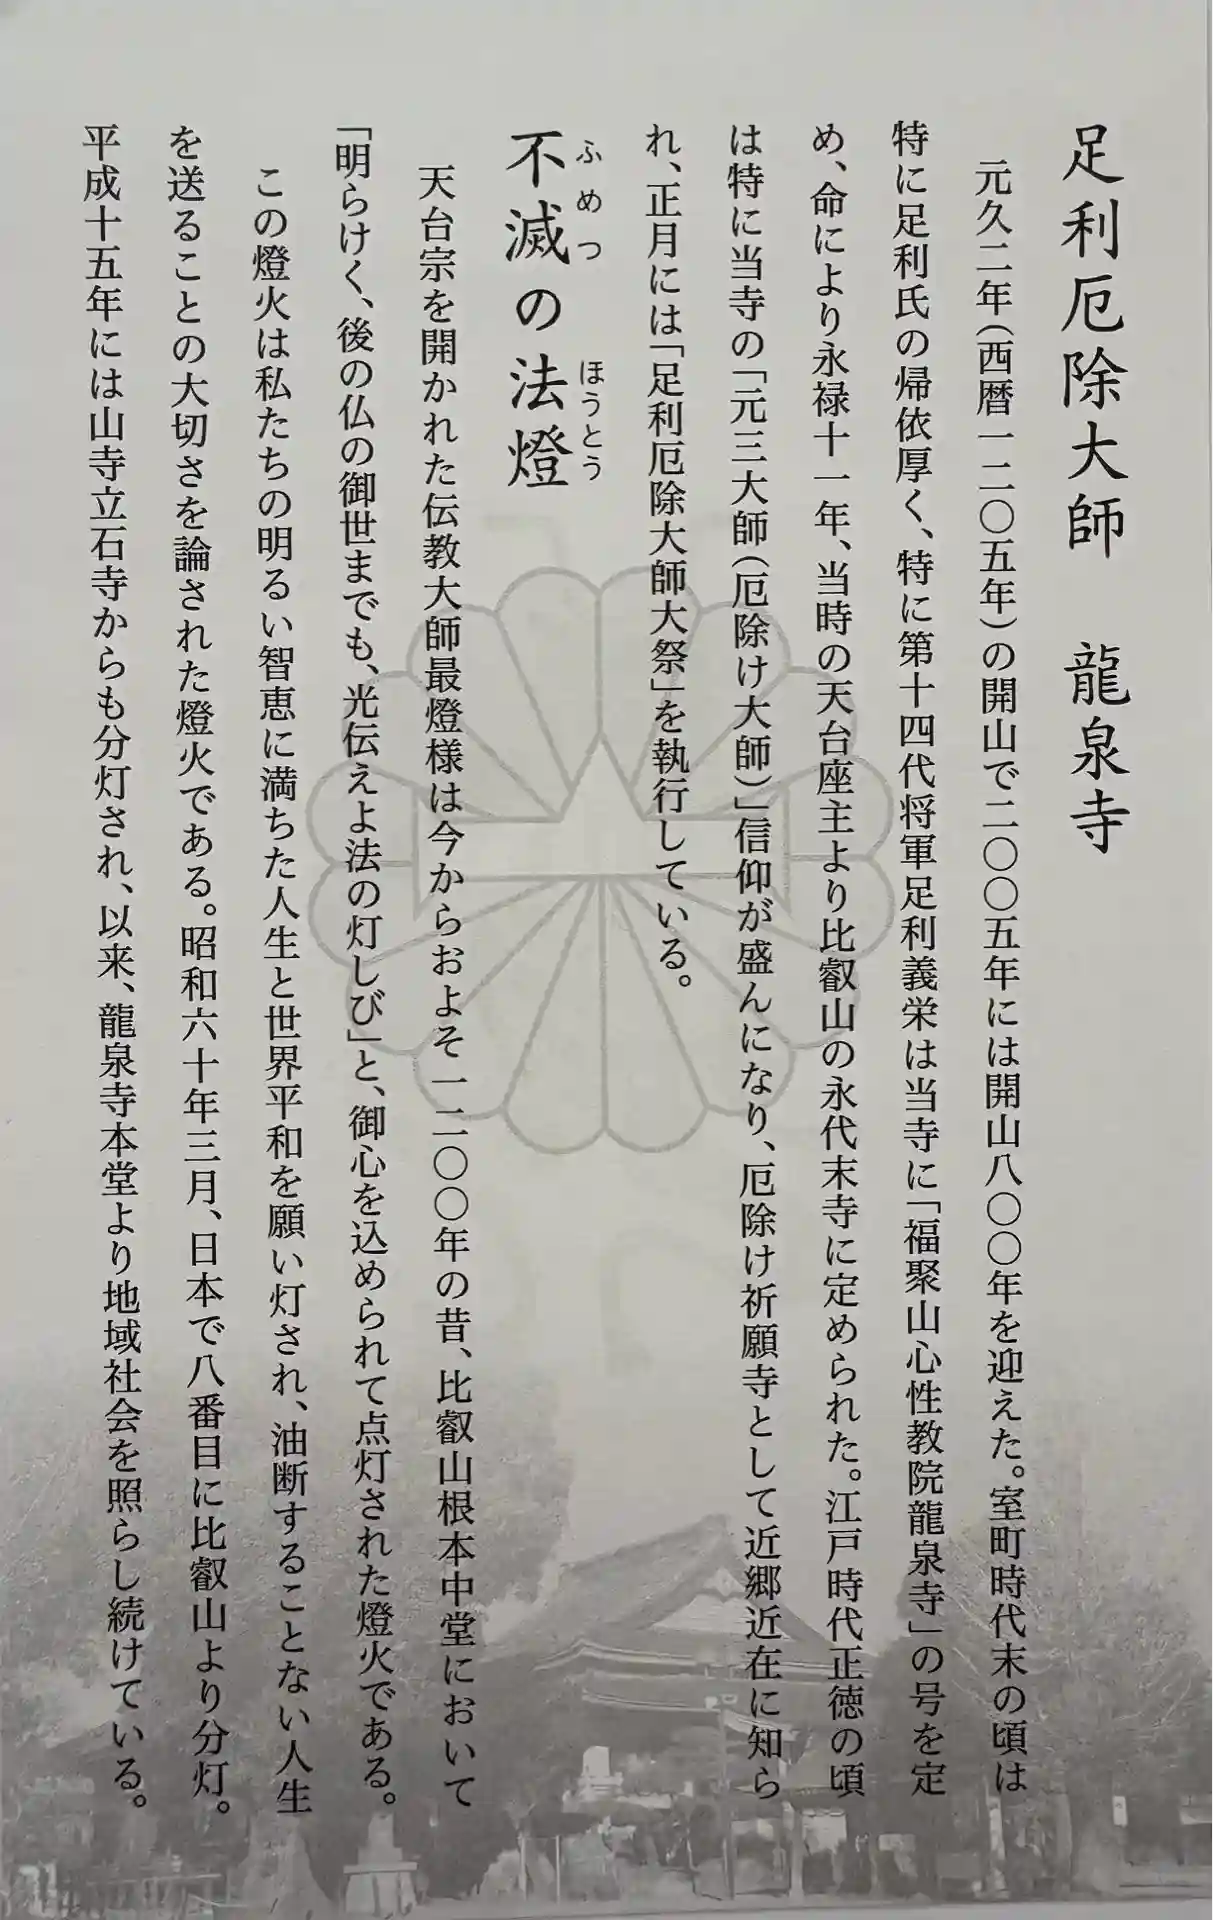 足利厄除大師　龍泉寺
元久二年(西暦一二〇五年)の開山で二〇〇五年には開山八〇〇年を迎えた。室町時代末の頃は
特に足利氏の帰依厚く、特に第十四代将軍足利義栄は当寺に「福聚山心性教院龍泉寺」の号を定
め、命により永禄十一年、当時の天台座主より比叡山の永代末寺に定められた。江戸時代正徳の頃
は特に当寺の「元三大師(厄除け大師)」信仰が盛んになり、厄除け祈願寺として近郷近在に知ら
れ、正月には「足利厄除大師大祭」を執行している。
ふめつ　ほうとう
不滅の法燈
天台宗を開かれた伝教大師最燈様は今からおよそ一二〇〇年の昔、比叡山根本中堂において
「明らけく、後の仏の御世までも、光伝えよ法の灯しび」と、御心を込められて点灯された燈火である。
この燈火は私たちの明るい智恵に満ちた人生と世界平和を願い灯され、油断することない人生
を送ることの大切さを論された燈火である。昭和六十年三月、日本で八番目に比叡山より分灯。
平成十五年には山寺立石寺からも分灯され、以来、龍泉寺本堂より地域社会を照らし続けている。